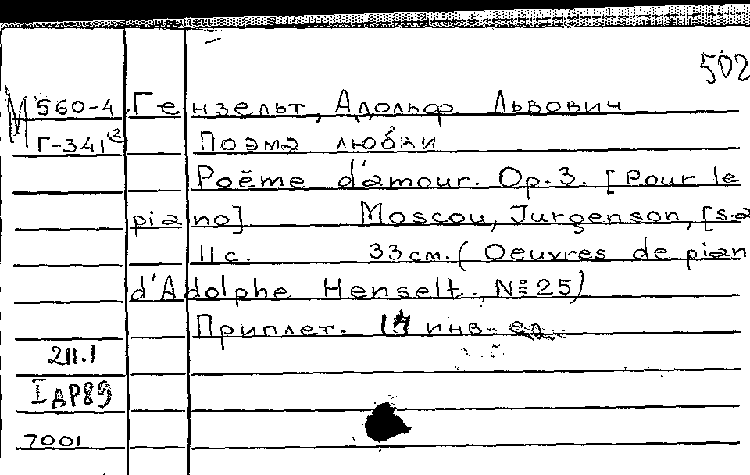 502
М 560-4 Гензельт, Адольф Львович
Г-341 Поэма любви
Poëme d'amour. Op.3. [Pour le
piano]. Moscou, Jurgenson, [s.a
11 с. 33 см. (Oeuvres de pian
d'Adolphe Henselt. № 25)
Приплет. 14 инв. ед.
211.1
I др89
7001